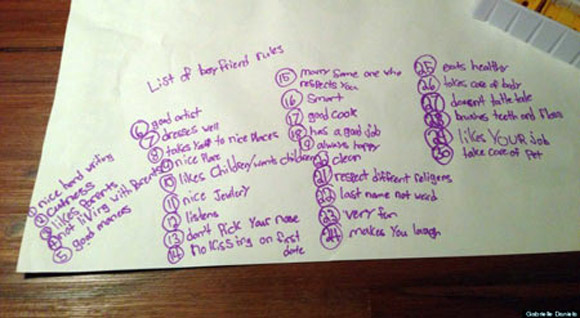 List of boyfriend rules
1 nice hand writing
2 cuteness
3 likes Parents
4 not living with Parents
5 good maners
6 good artist
7 dresses well
8 takes You to nice Places
9 nice Place
10 likes Children/wants children
11 nice Jewlry
12 listens
13 don't Pick Your nose
14 No kissing on first
date
15 marry some one who
respects You
16 smart
17 good cook
18 has a good job
19 always happy
clean
21 respect diffrent religens
22 last name not weird
23 very fun
24 makes You laugh
25 eats healthy
26 takes care of body
27 doesn't tattle tale
28 brushes teeth and floss
likes YOUR job
take care of Pet
Gabrielle Daniels